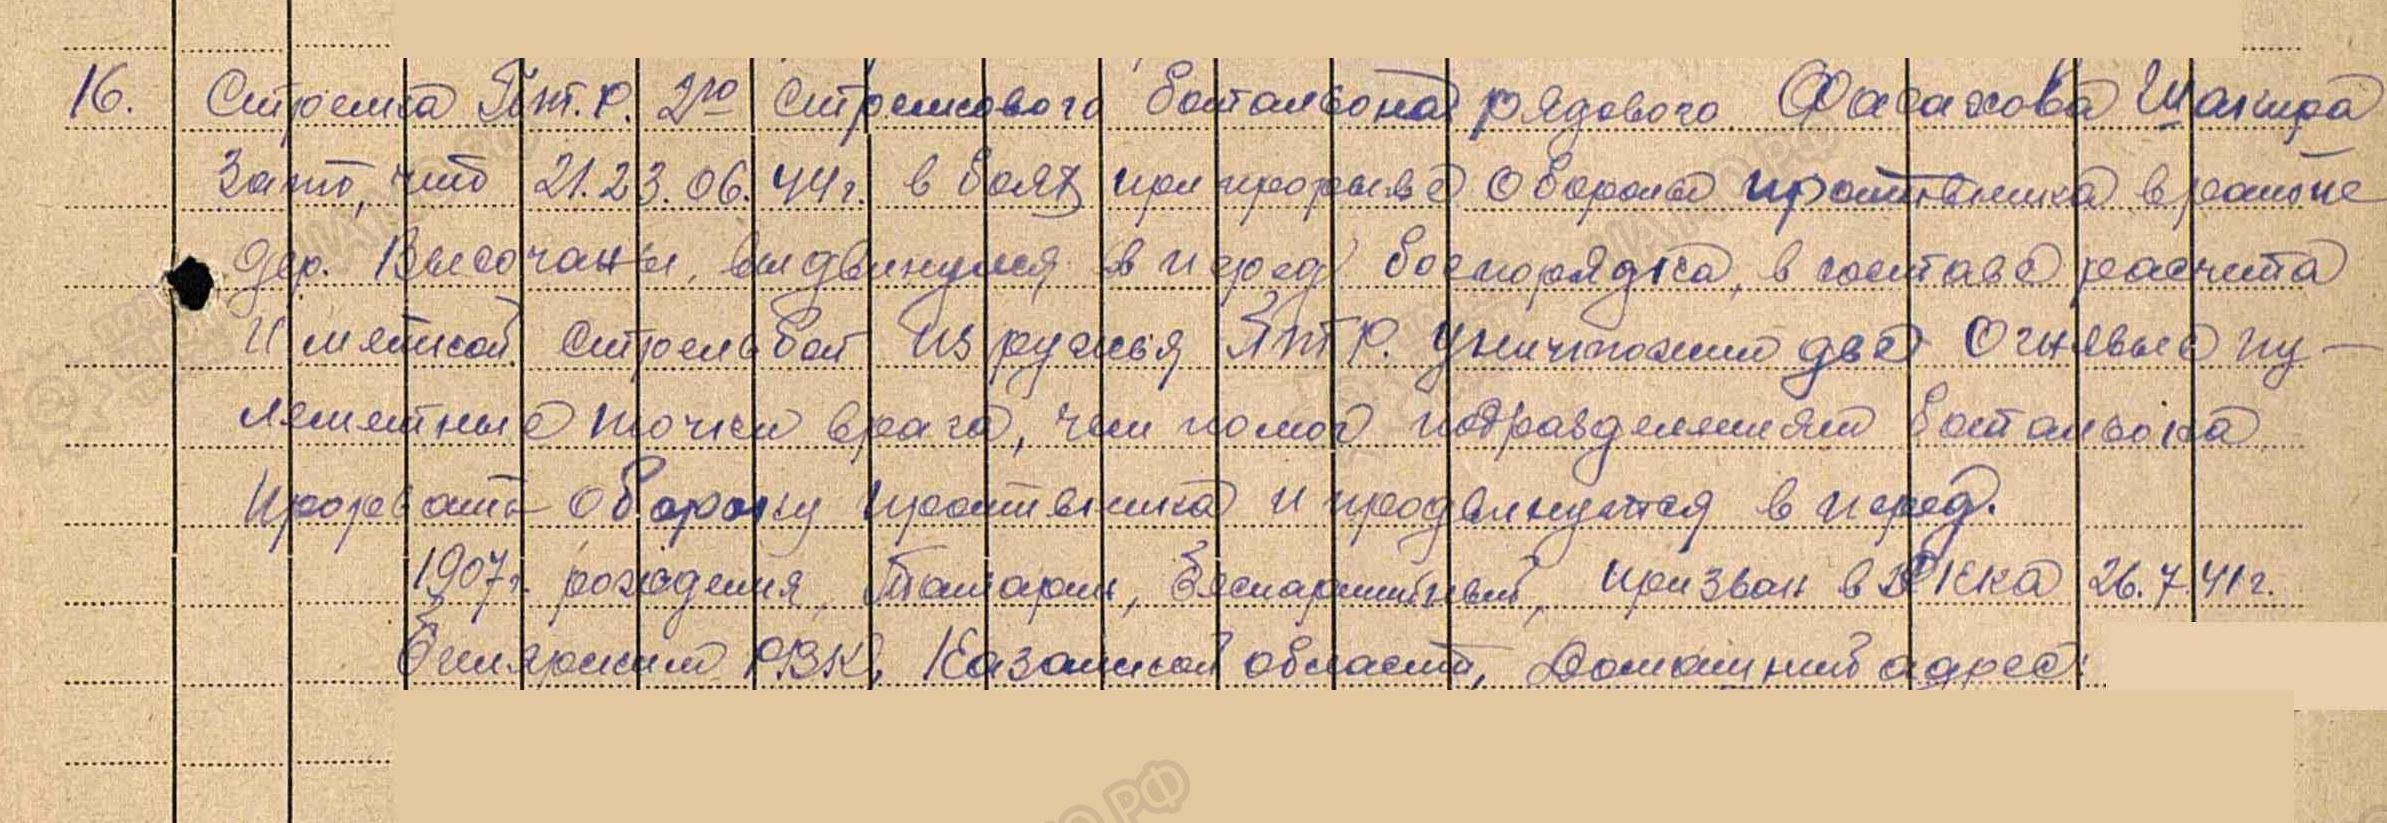 16. Стрелка П.т.р. 2го стрелкового батальона рядового Фасахова Шакира
Зато, что 21.23.06.44г. в боях при прорыве обороны противника в районе
дер. Высочаны, выдвинулся в перед боепорядка, в составе расчета
и меткой стрельбой из ружья П.т.Р. уничтожил две огневые пу-
леметные точки врага, чем помог подразделениям батальона
прорвать оборону противника и продвинутся в перед.
1907г. рождения, татарин, беспартийный, призван в РККА 26.7.41г.
РВК, Казанской области, Домашний адрес: